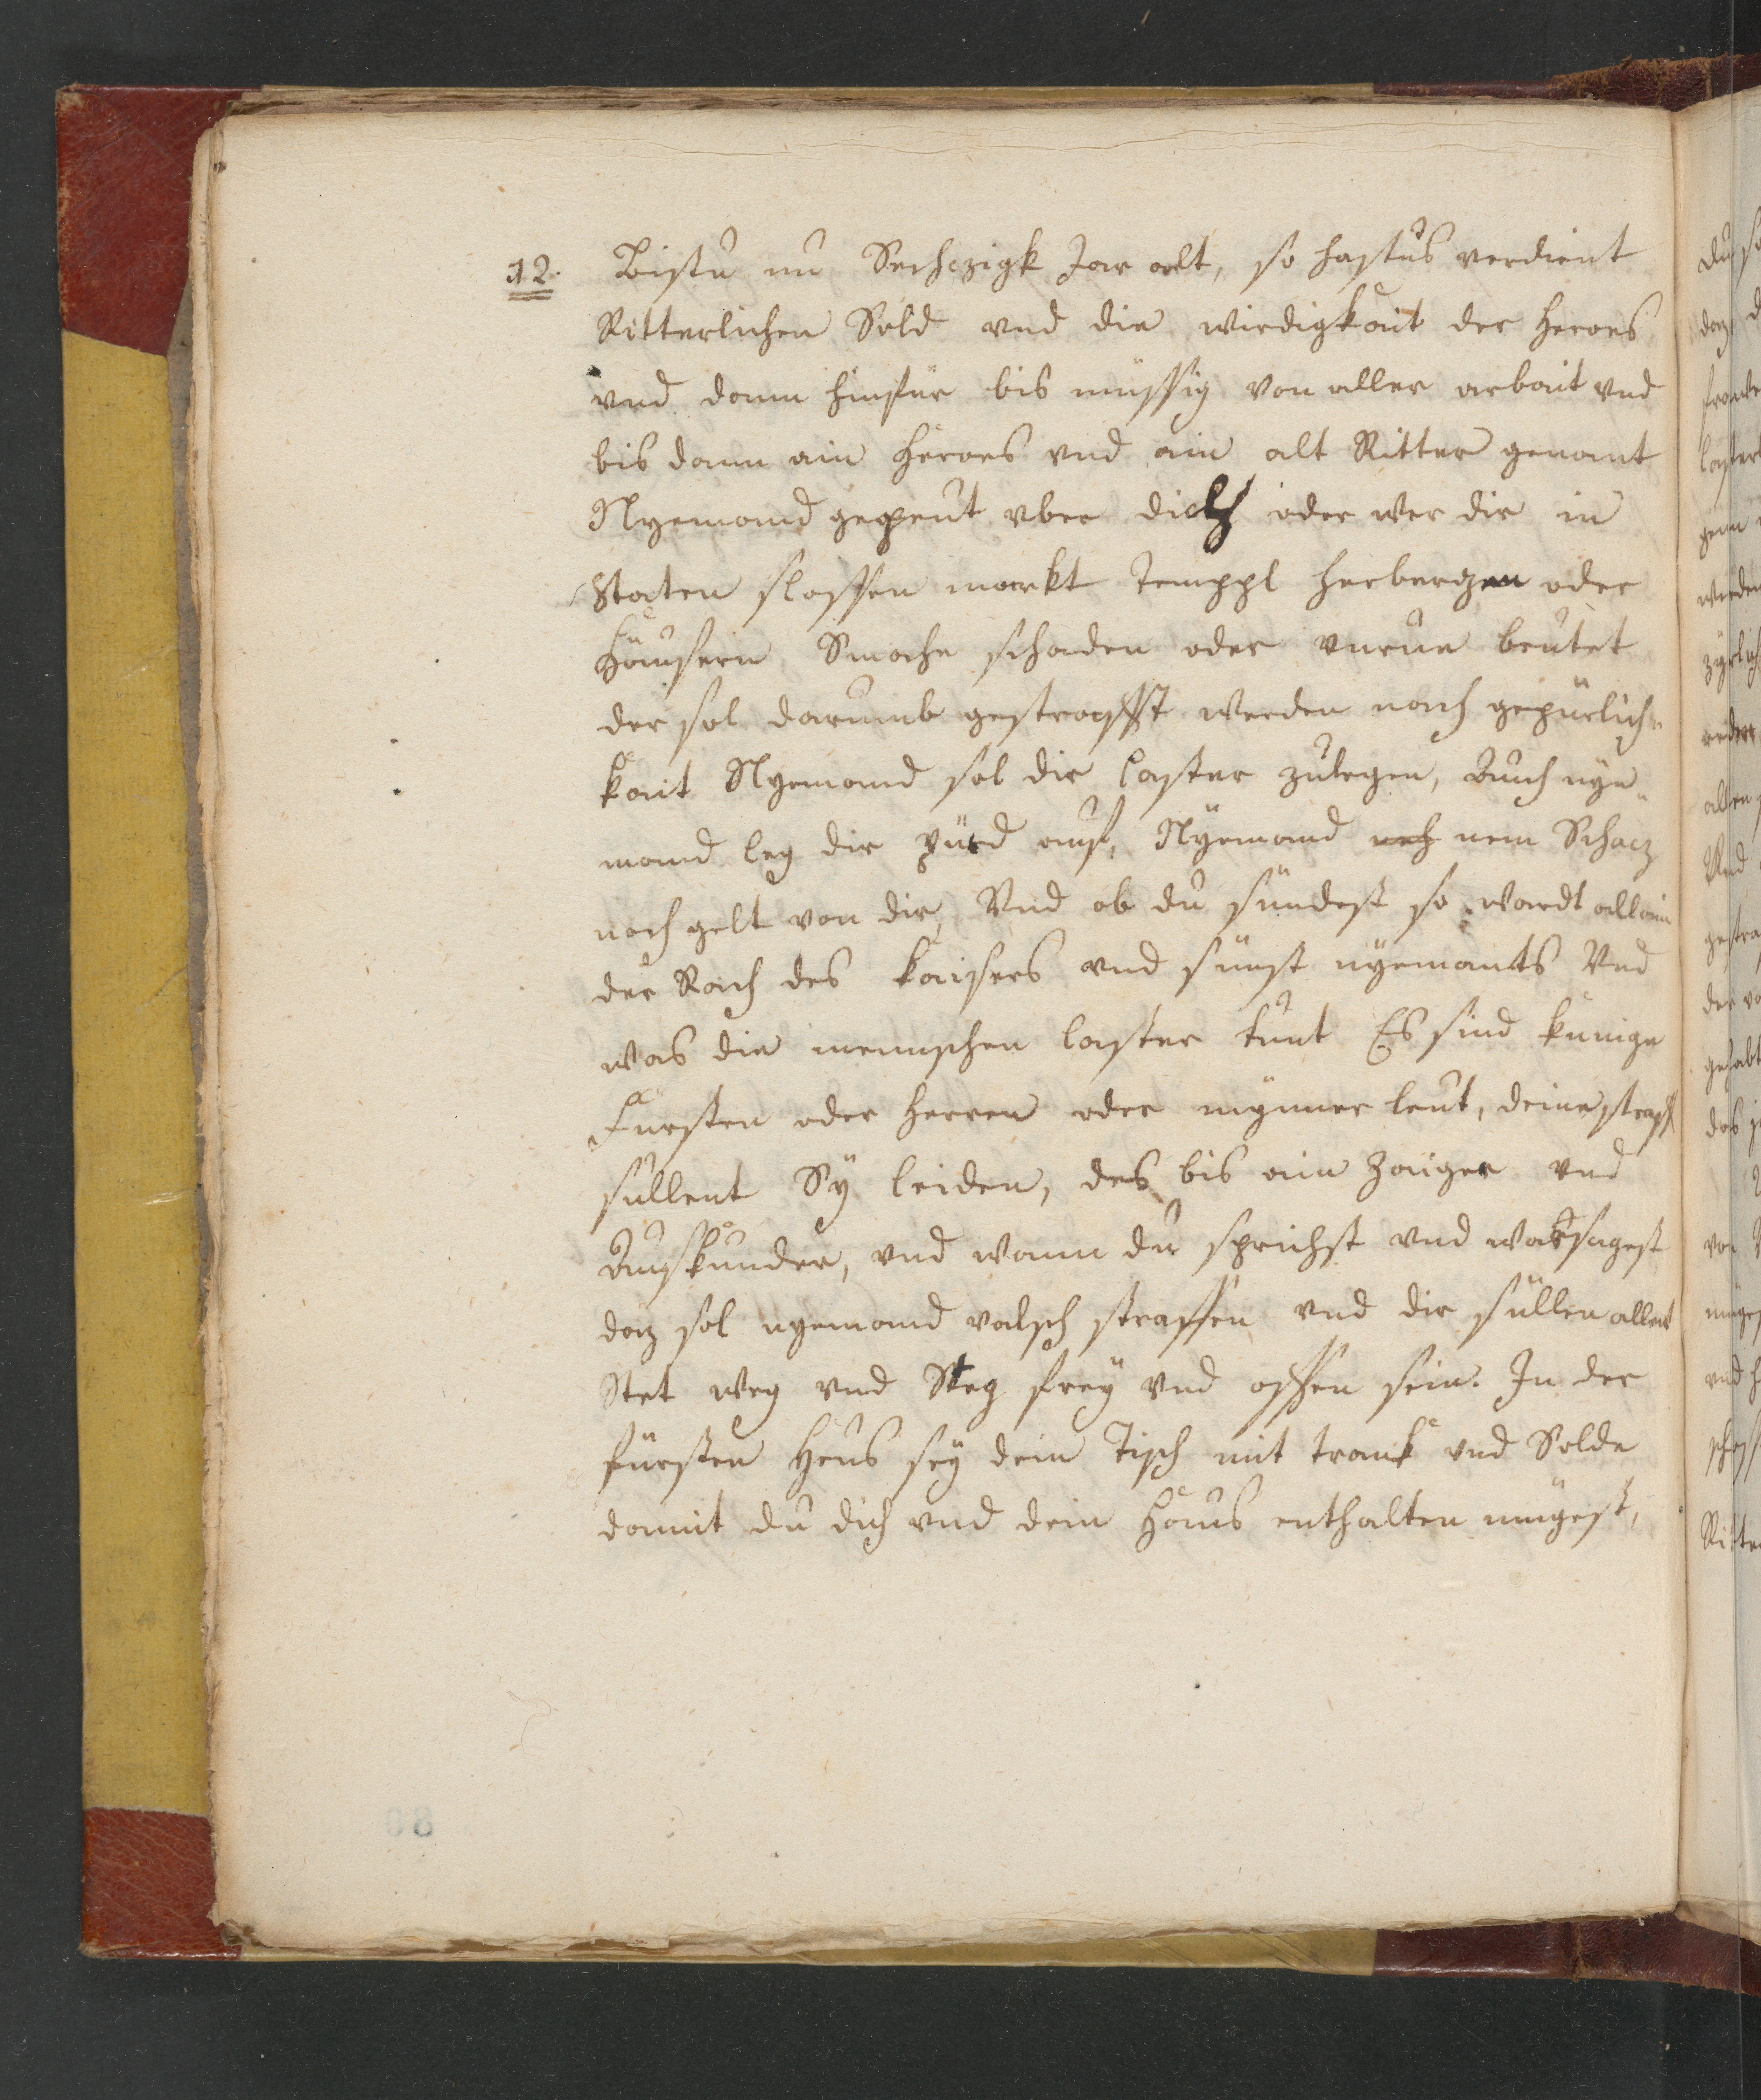 12. Bistu nu Sechczigk Jar alt, so hastus verdient
Ritterlichen Sold vnd die wirdigkait der heroes
vnd dann hinfür bis müssig von aller arbait vnd
bis dann ain heroes vnd ain alt Ritter genant
Nyemand gepeut vber dich oder wer dir in
Staten slossen markt Temppl herbergen oder
Häusern Smache schaden oder vnrue beutet
der sol darumb gestrafft werden nach gepürlich„
kait Nyemand sol dir laster zulegen, Auch nye„
mand leg dir pürd auf, Nyemand nem Schacz
noch gelt von dir, Vnd ob du sündest so wardt allain
der Rach des kaisers vnd sünst nyemants Vnd
was die menschen laster tünt Es sind künige
Fürsten oder herren oder mynner leut, deine straff
süllent Sy leiden, des bis ain Zaiger vnd
Auskünder, vnd wann du sprichst vnd warsagest
daz sol nyemand valsch straffen vnd dir süllen allent
Stet weg vnd Steg frey vnd offen sein. In der
fürsten Heus sey dein Tisch mit trank vnd Solde
damit du dich vnd dein Haus enthalten mügest,
80